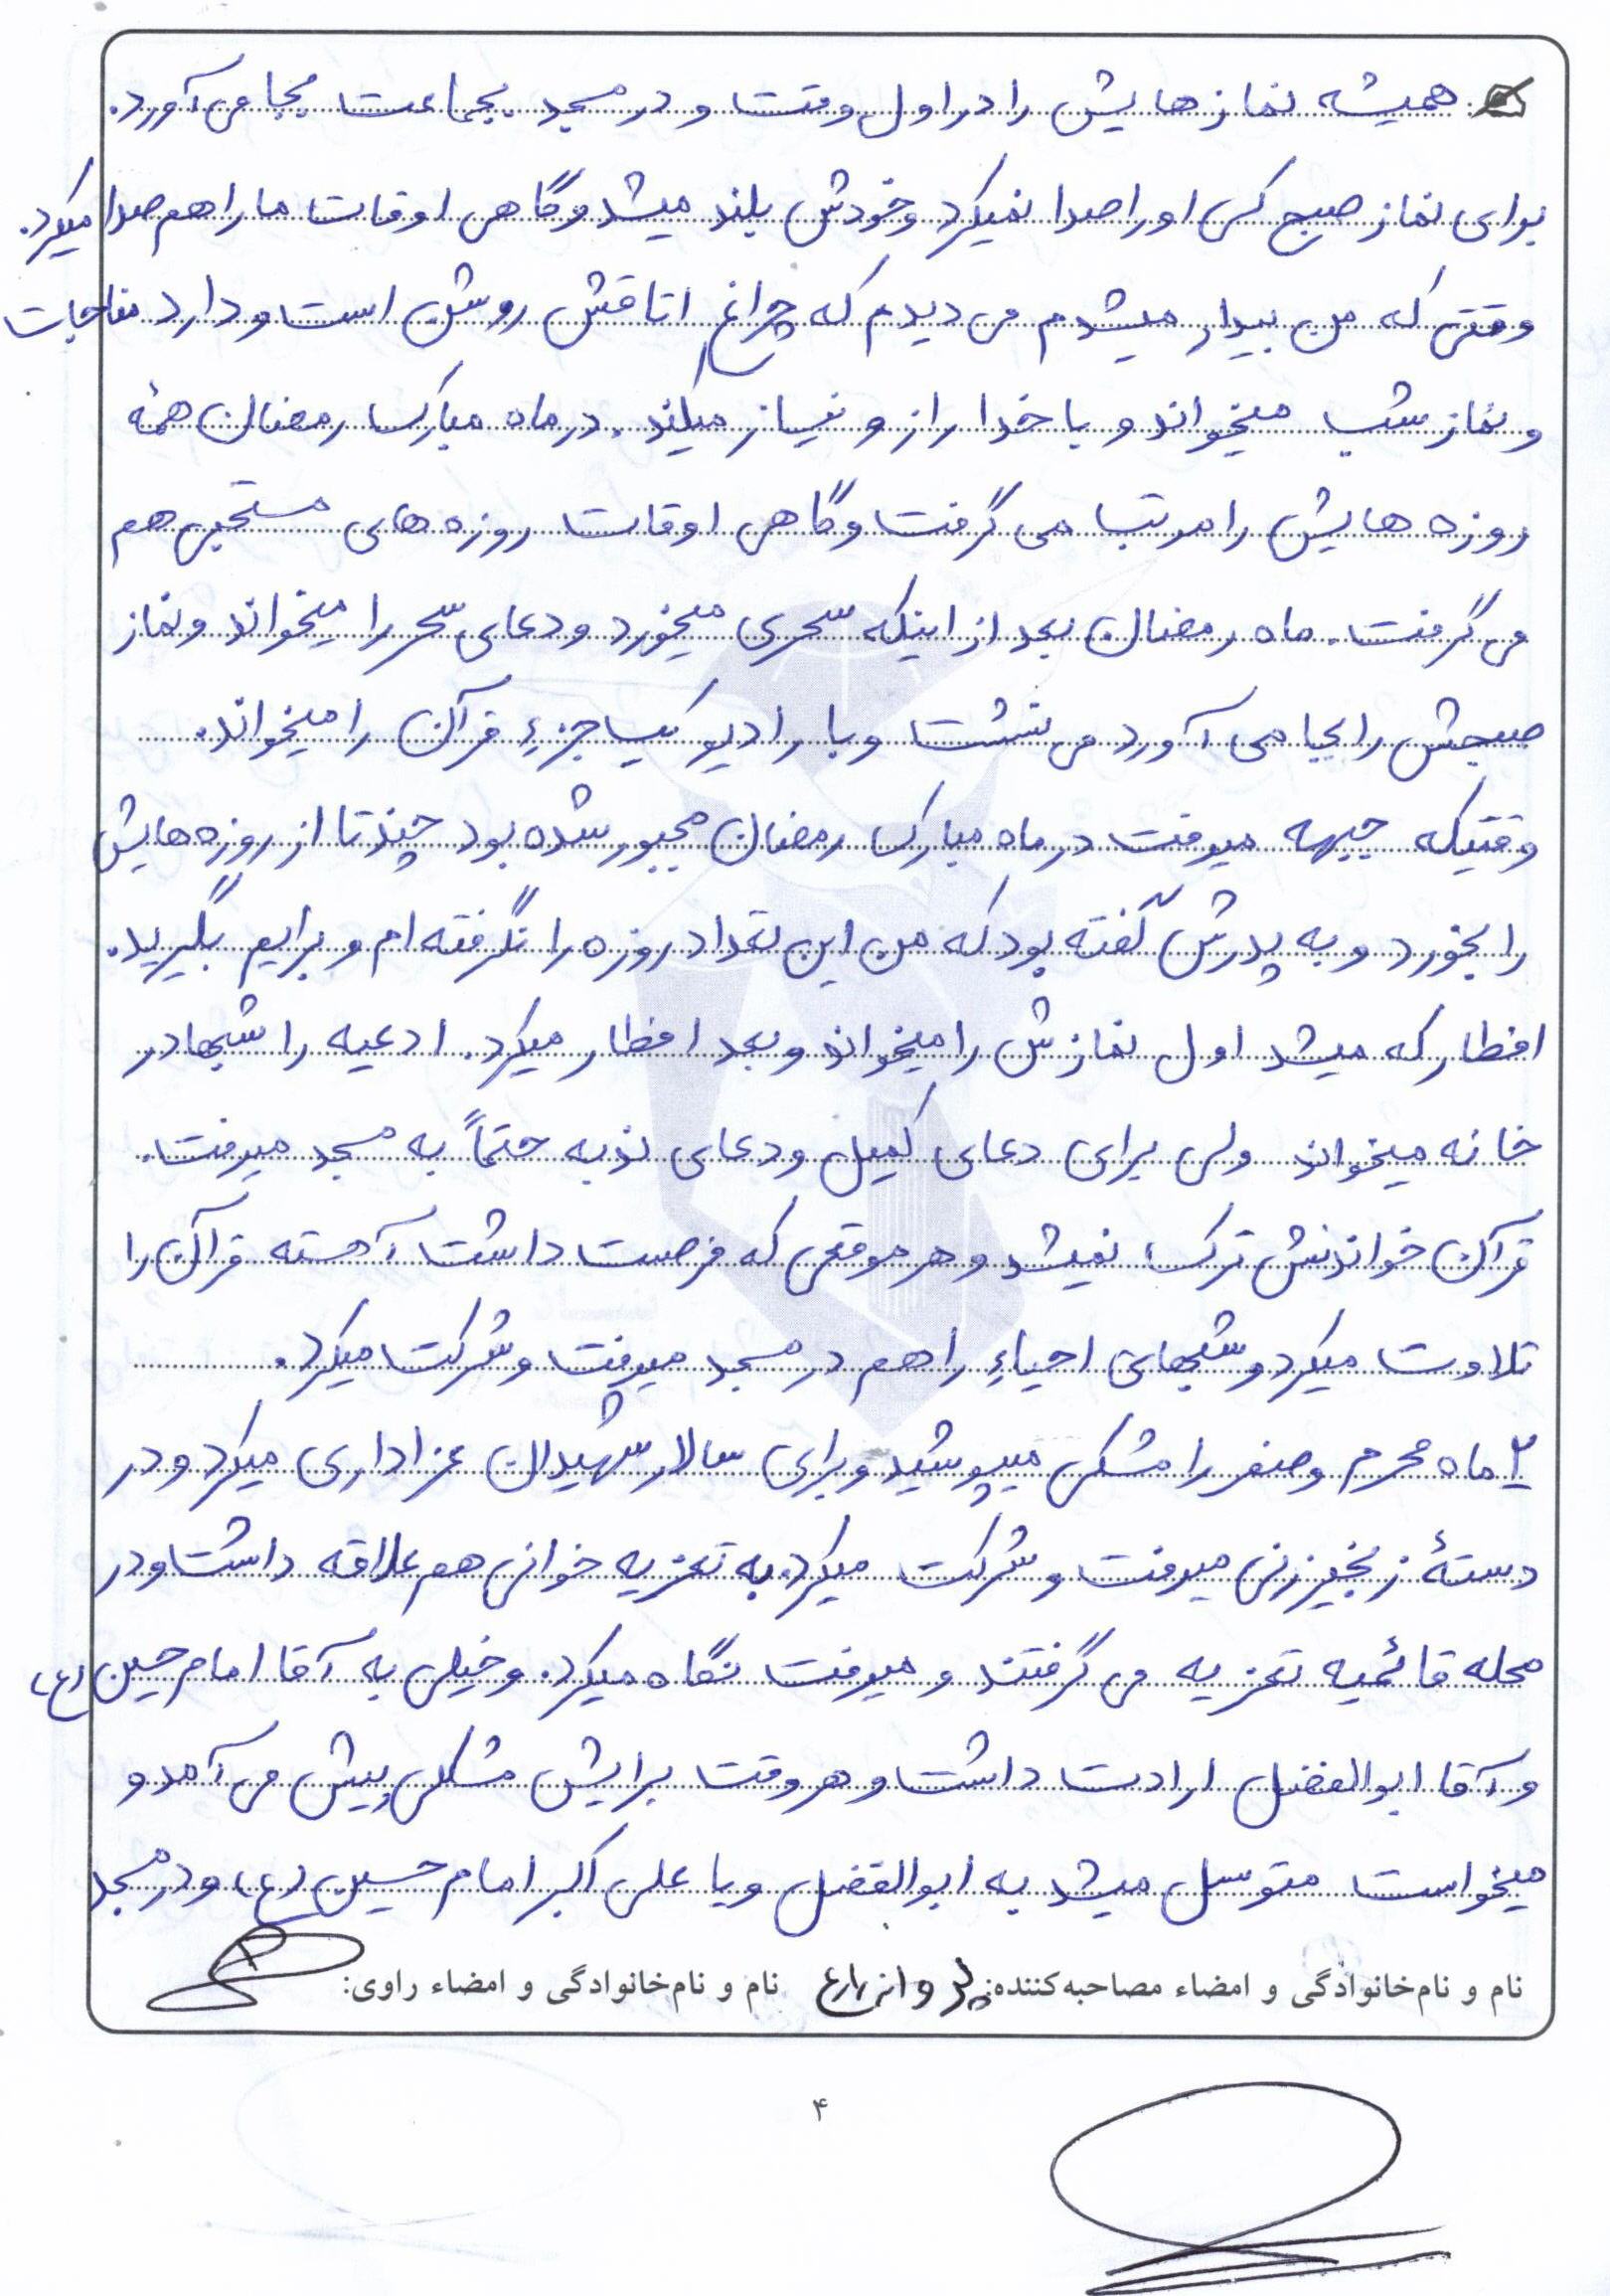 همیشه نمازهایش را در اول وقت و در مسجد بجماعت بجا می آورد.
برای نماز صبح کسی او را صدا نمیکرد و خودش بلند میشد و گاهی اوقات ما را هم صدا میکرد.
وقتی که من بیدار میشدم می دیدم که چراغ اتاقش روشن است و دارد مناجات
و نماز شب میخواند و با خدا راز و نیاز میکند. در ماه مبارک رمضان همهٔ
روزه هایش را مرتب می گرفت و گاهی اوقات روزه های مستحبی هم
می گرفت. ماه رمضان بعد از اینکه سحری میخورد و دعای سحر را میخواند و نماز
صبحش را بجا می آورد می نشست و با رادیو یک جزء قرآن را میخواند.
وقتیکه جبهه میرفت در ماه مبارک رمضان مجبور شده بود چند تا از روزه هایش
را بخورد و به پدرش گفته بود که من این تعداد روزه را نگرفته ام و برایم بگیرید.
افطار که میشد اول نمازش را میخواند و بعد افطار میکرد. ادعیه را شبها در
خانه میخواند ولی برای دعای کمیل و دعای ندبه حتماً به مسجد میرفت.
قرآن خواندنش ترک نمیشد و هر موقعی که فرصت داشت آهسته قرآن را
تلاوت میکرد و شبهای احیاء را هم در مسجد میرفت و شرکت میکرد.
۲ ماه محرم و صفر را مشکی میپوشید و برای سالار شهیدان عزاداری میکرد و در
دستهٔ زنجیرزنی میرفت و شرکت میکرد. به تعزیه خوانی هم علاقه داشت و در
محله قائمیه تعزیه می گرفتند و میرفت نگاه میکرد. و خیلی به آقا امام حسین (ع)
و آقا ابوالفضل ارادت داشت و هر وقت برایش مشکلی پیش می آمد و
میخواست متوسل میشد به ابوالفضل و یا علی اکبر امام حسین (ع) و در مسجد
نام و نام‌خانوادگی و امضاء مصاحبه‌کننده: نام و نام‌خانوادگی و امضاء راوی:
۴